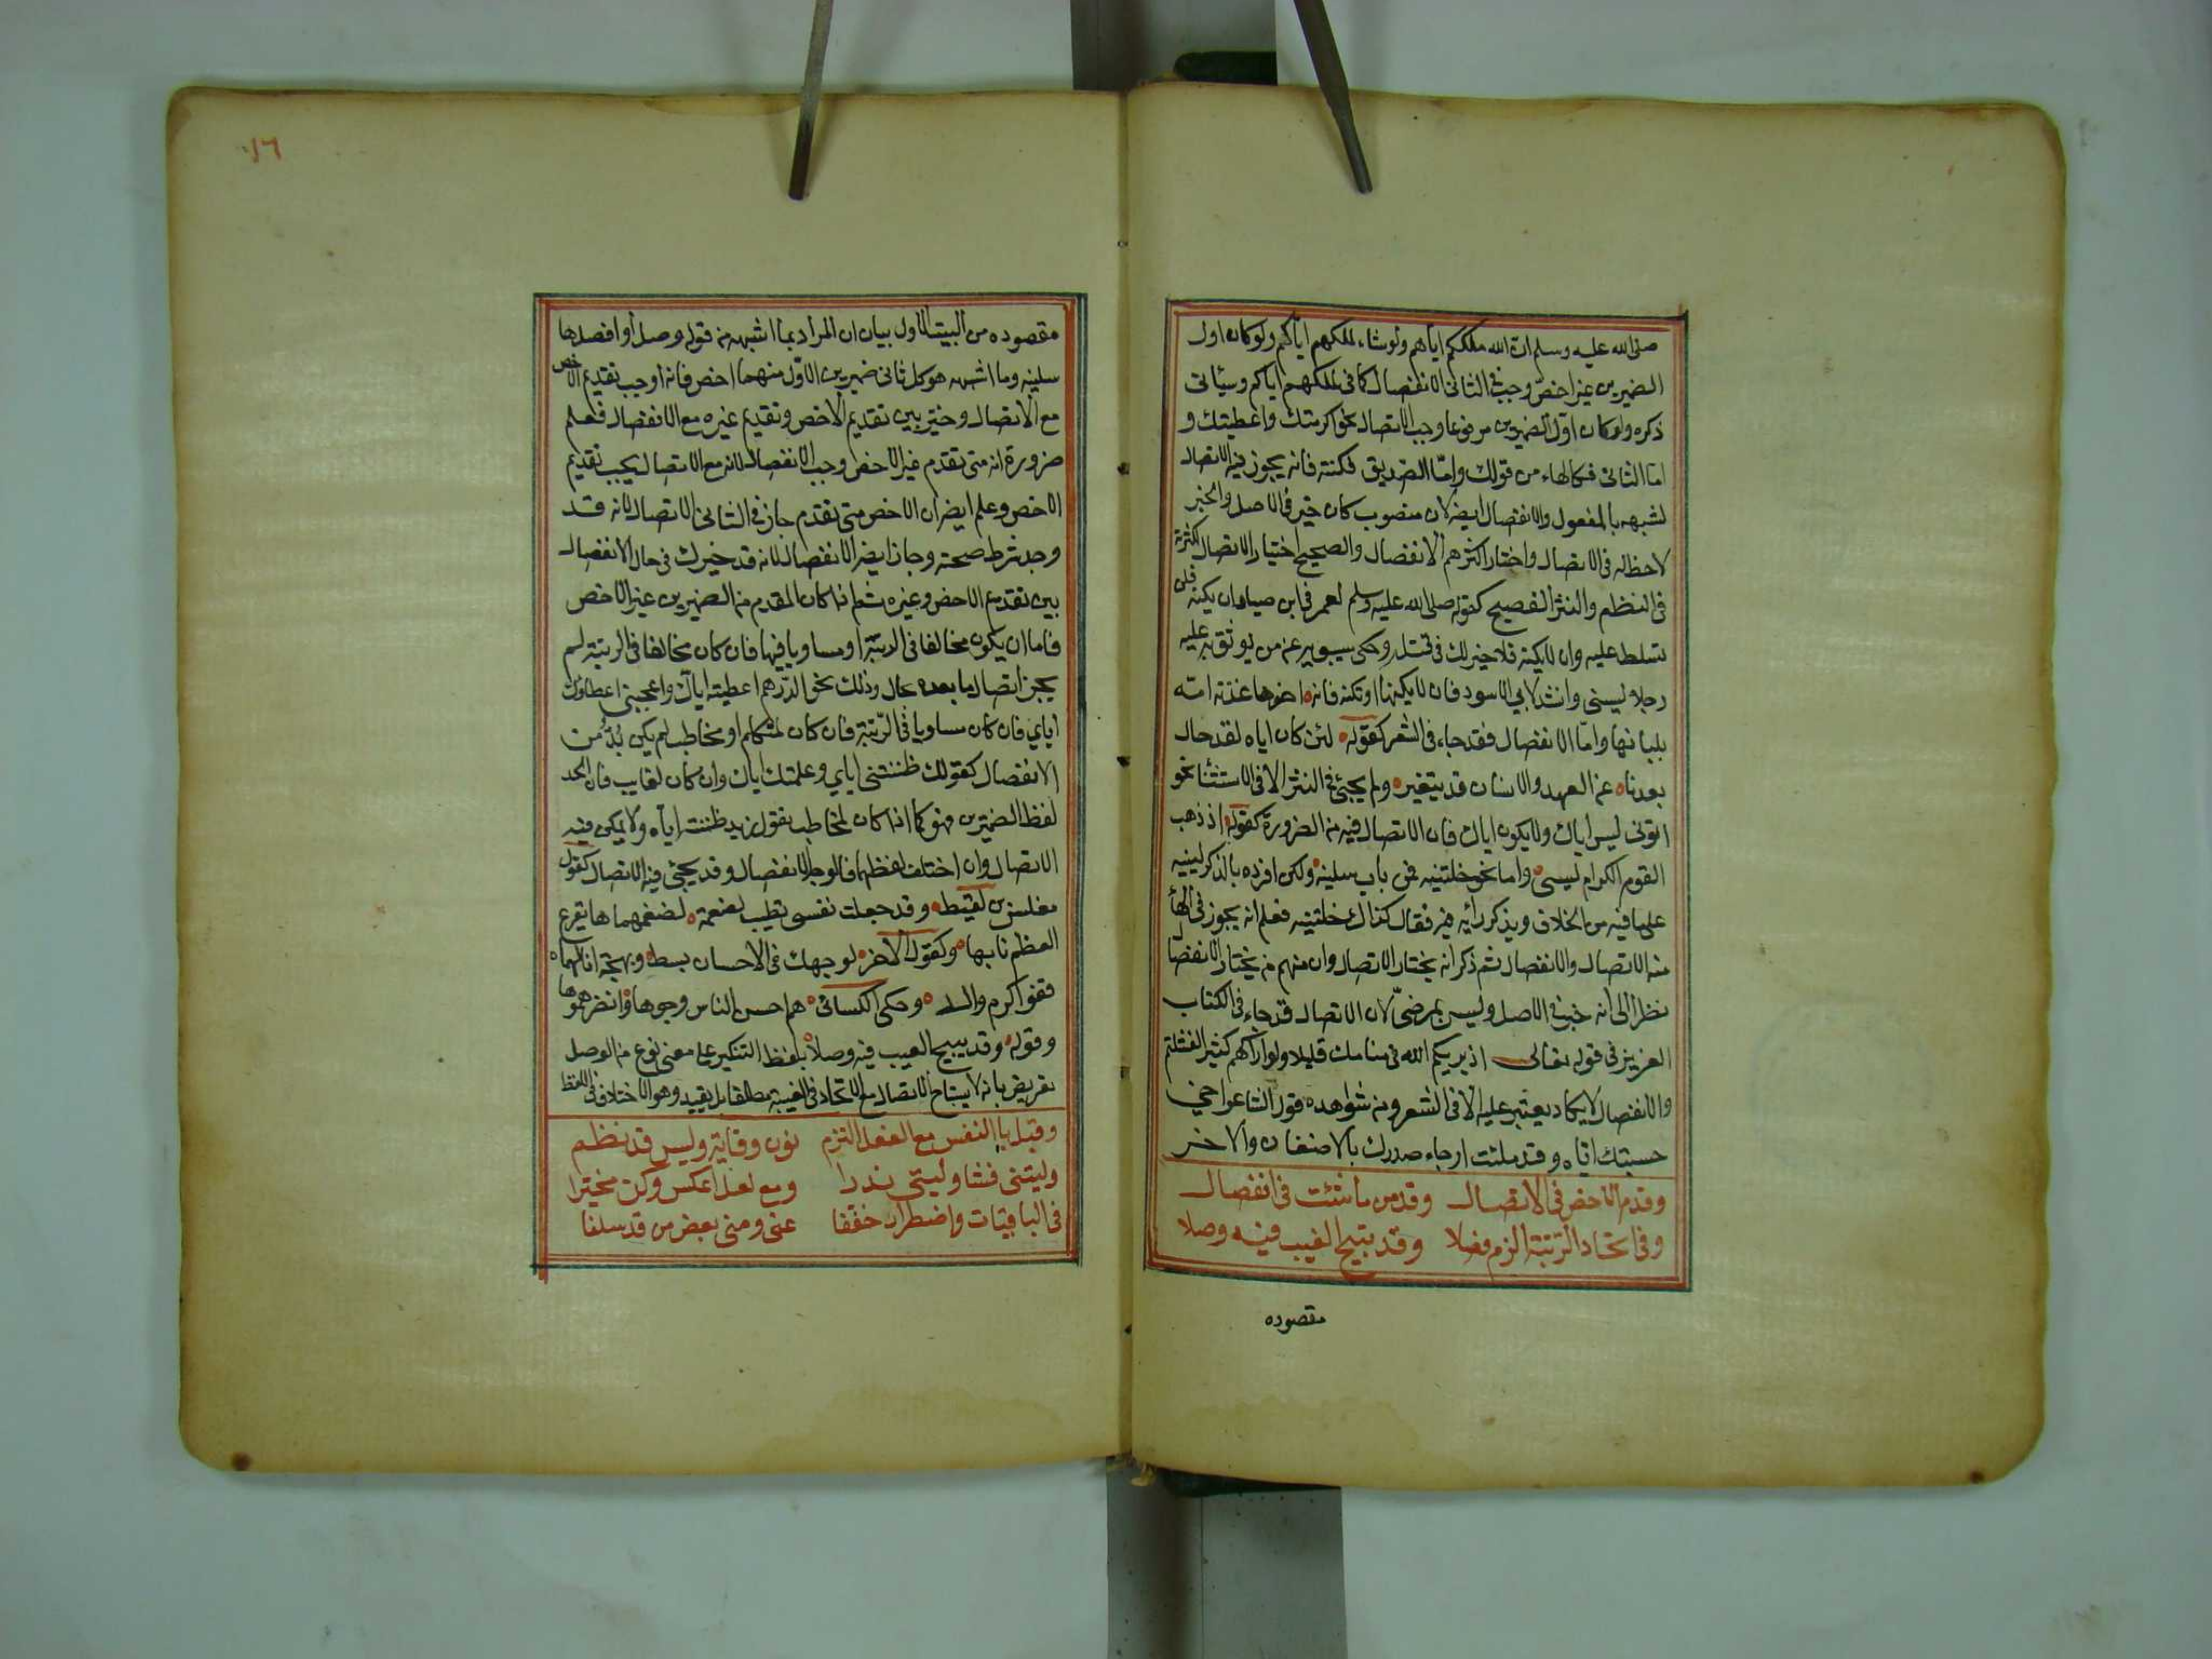 صلى الله عليه وسلم ان الله ملككم اياهم ولو شاء لملكهم اياكم ولو كان اول
الضميرين غير اخص وجب في الثاني الانفصال كما في لملكهم اياكم وسيأتي
ذكره ولو كان اول الضميرين مرفوعا وجب الاتصال نحو اكرمتك واعطيتك و
اما الثاني فكالهاء من قولك واما الصديق فكنته فانه يجوز فيه الاتصال
لشبهه بالمفعول والانفصال ايضا لان منصوب كان خبر في الاصل والخبر
لا حظ له في الاتصال واختار اكثرهم الانفصال والصحيح اختيار الاتصال لكثرته
في النظم والنثر الفصيح كقوله صلى الله عليه وسلم لعمر في ابن صياد ان يكنه فلن
تسلط عليه وان لا يكنه فلا خير لك في قتله وحكى سيبويه عن من يوثق به عليه
رجلا ليسني وانشد لابي الاسود فان لا يكنها او تكنه فانه اخوها غذته امه
بلبانها واما الانفصال فقد جاء في الشعر كقوله لئن كان اياه لقد حال
بعدنا عن العهد والانسان قد يتغير ولم يجئ في النثر الا في الاستثنا نحو
اتوني ليس اياك ولا يكون اياك فان الاتصال فيه من الضرورة كقوله اذ ذهب
القوم الكرام ليسي واما نحو خلتنيه فمن باب سلنيه ولكن افرده بالذكر لينبه
على ما فيه من الخلاف ويذكر رأيه فيه فقال كذاك خلتنيه فعلم انه يجوز في الهاء
منه الاتصال والانفصال ثم ذكر انه يختار الاتصال وان منهم من يختار الانفصال
نظرا الى انه خبر في الاصل وليس بمرضي لان الاتصال قد جاء في الكتاب
العزيز في قوله تعالى اذ يريكهم الله في منامك قليلا ولو اراكهم كثيرا لفشلتم
والانفصال لا يكاد يعثر عليه الا في الشعر ومن شواهده قول الشاعر اخي
حسبتك اياه وقد ملئت ارجاء صدرك بالاضغان والاخر
وقدم الاخص في الاتصال وقدمن ما شئت في انفصال
وفي اتحاد الرتبة الزم فصلا وقد يبيح الغيب فيه وصلا
مقصوده
١٦
مقصوده من البيت الاول بيان ان المراد بما اشبهه من قوله وصل او افصل ها
سلنيه وما اشبهه هو كل ثاني ضميرين الاول منهما اخص فانه اوجب تقديم الاخص
مع الاتصال وخير بين تقديم الاخص وتقديم غيره مع الانفصال فعلم
ضرورة انه متى تقدم غير الاخص وجب الانفصال لانه مع الاتصال يجب تقديم
الاخص وعلم ايضا ان الاخص متى تقدم جاز في الثاني الاتصال لانه قد
وجد شرط صحته وجاز ايضا الانفصال لانه قد خيرك في حال الانفصال
بين تقديم الاخص وغيره ثم اذا كان المقدم من الضميرين غير الاخص
فاما ان يكون مخالفا في الرتبة او مساويا فيها فان كان مخالفا في الرتبة لم
يجز اتصال ما بعده بحال وذلك نحو الدرهم اعطيته اياك واعجبني اعطاؤك
اياي فان كان مساويا في الرتبة فان كان لمتكلم او مخاطب لم يكن بد من
الانفصال كقولك ظننتني اياي وعلمتك اياك وان كان لغايب فان اتحد
لفظ الضميرين فهو كما اذا كان لمخاطب تقول زيد ظننته اياه ولا يمكن فيه
الاتصال وان اختلف لفظهما فالوجه الانفصال وقد يجئ فيه الاتصال كقول
مغلس بن لقيط وقد جعلت نفسي تطيب لضغمة لضغمهماها يقرع
العظم نابها وكقول الاخر لوجهك في الاحسان بسط وبهجة انالهماه
قفو اكرم والد وحكى الكسائي هم احسن الناس وجوها وانضرهموها
وقوله وقد يبيح الغيب فيه وصلا بلفظ التنكير على معنى نوع من الوصل
تعريض بانه لا يستباح الاتصال مع الاتحاد في الغيبة مطلقا بل بقيد وهو الاختلاف في اللفظ
وقبل يا النفس مع الفعل التزم نون وقاية وليس قد نظم
وليتني فشا وليتي ندرا ومع لعل اعكس وكن مخيرا
في الباقيات واضطرارا خففا عني ومني بعض من قد سلفا